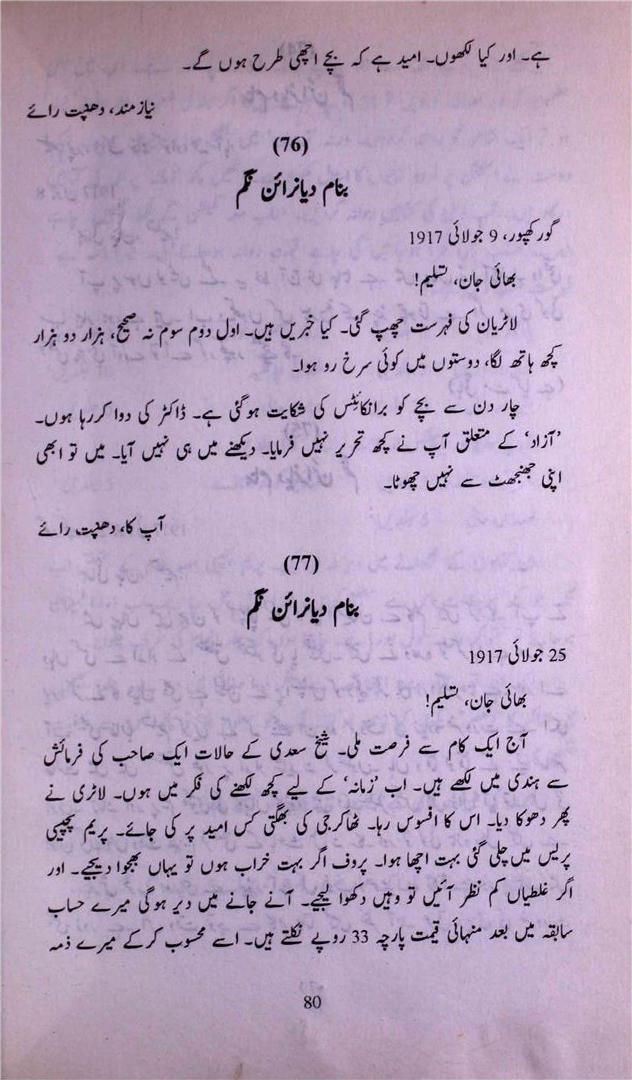 ہے۔ اور کیا لکھوں۔ امید ہے کہ بچے اچھی طرح ہوں گے۔
نیاز مند، دھنپت رائے
(76)
بنام دیانرائن نگم
گورکھپور، 9 جولائی 1917
بھائی جان، تسلیم!
لاٹریاں کی فہرست چھپ گئی۔ کیا خبریں ہیں۔ اول دوم سوم نہ صحیح، ہزار دو ہزار
کچھ ہاتھ لگا، دوستوں میں کوئی سرخ رو ہوا۔
چار دن سے بچے کو برانکائٹس کی شکایت ہوگئی ہے۔ ڈاکٹر کی دوا کررہا ہوں۔
’آزاد‘ کے متعلق آپ نے کچھ تحریر نہیں فرمایا۔ دیکھنے میں ہی نہیں آیا۔ میں تو ابھی
اپنی جھنجھٹ سے نہیں چھوٹا۔
آپ کا، دھنپت رائے
(77)
بنام دیانرائن نگم
25 جولائی 1917
بھائی جان، تسلیم!
آج ایک کام سے فرصت ملی۔ شیخ سعدی کے حالات ایک صاحب کی فرمائش
سے ہندی میں لکھے ہیں۔ اب ’زمانہ‘ کے لیے کچھ لکھنے کی فکر میں ہوں۔ لاٹری نے
پھر دھوکا دیا۔ اس کا افسوس رہا۔ ٹھاکرجی کی بھگتی کس امید پر کی جائے۔ پریم پچیسی
پریس میں چلی گئی بہت اچھا ہوا۔ پروف اگر بہت خراب ہوں تو یہاں بھجوا دیجیے۔ اور
اگر غلطیاں کم نظر آئیں تو وہیں دکھوا لیجیے۔ آنے جانے میں دیر ہوگی میرے حساب
سابقہ میں بعد منہائی قیمت پارچہ 33 روپے نکلتے ہیں۔ اسے محسوب کرکے میرے ذمہ
80